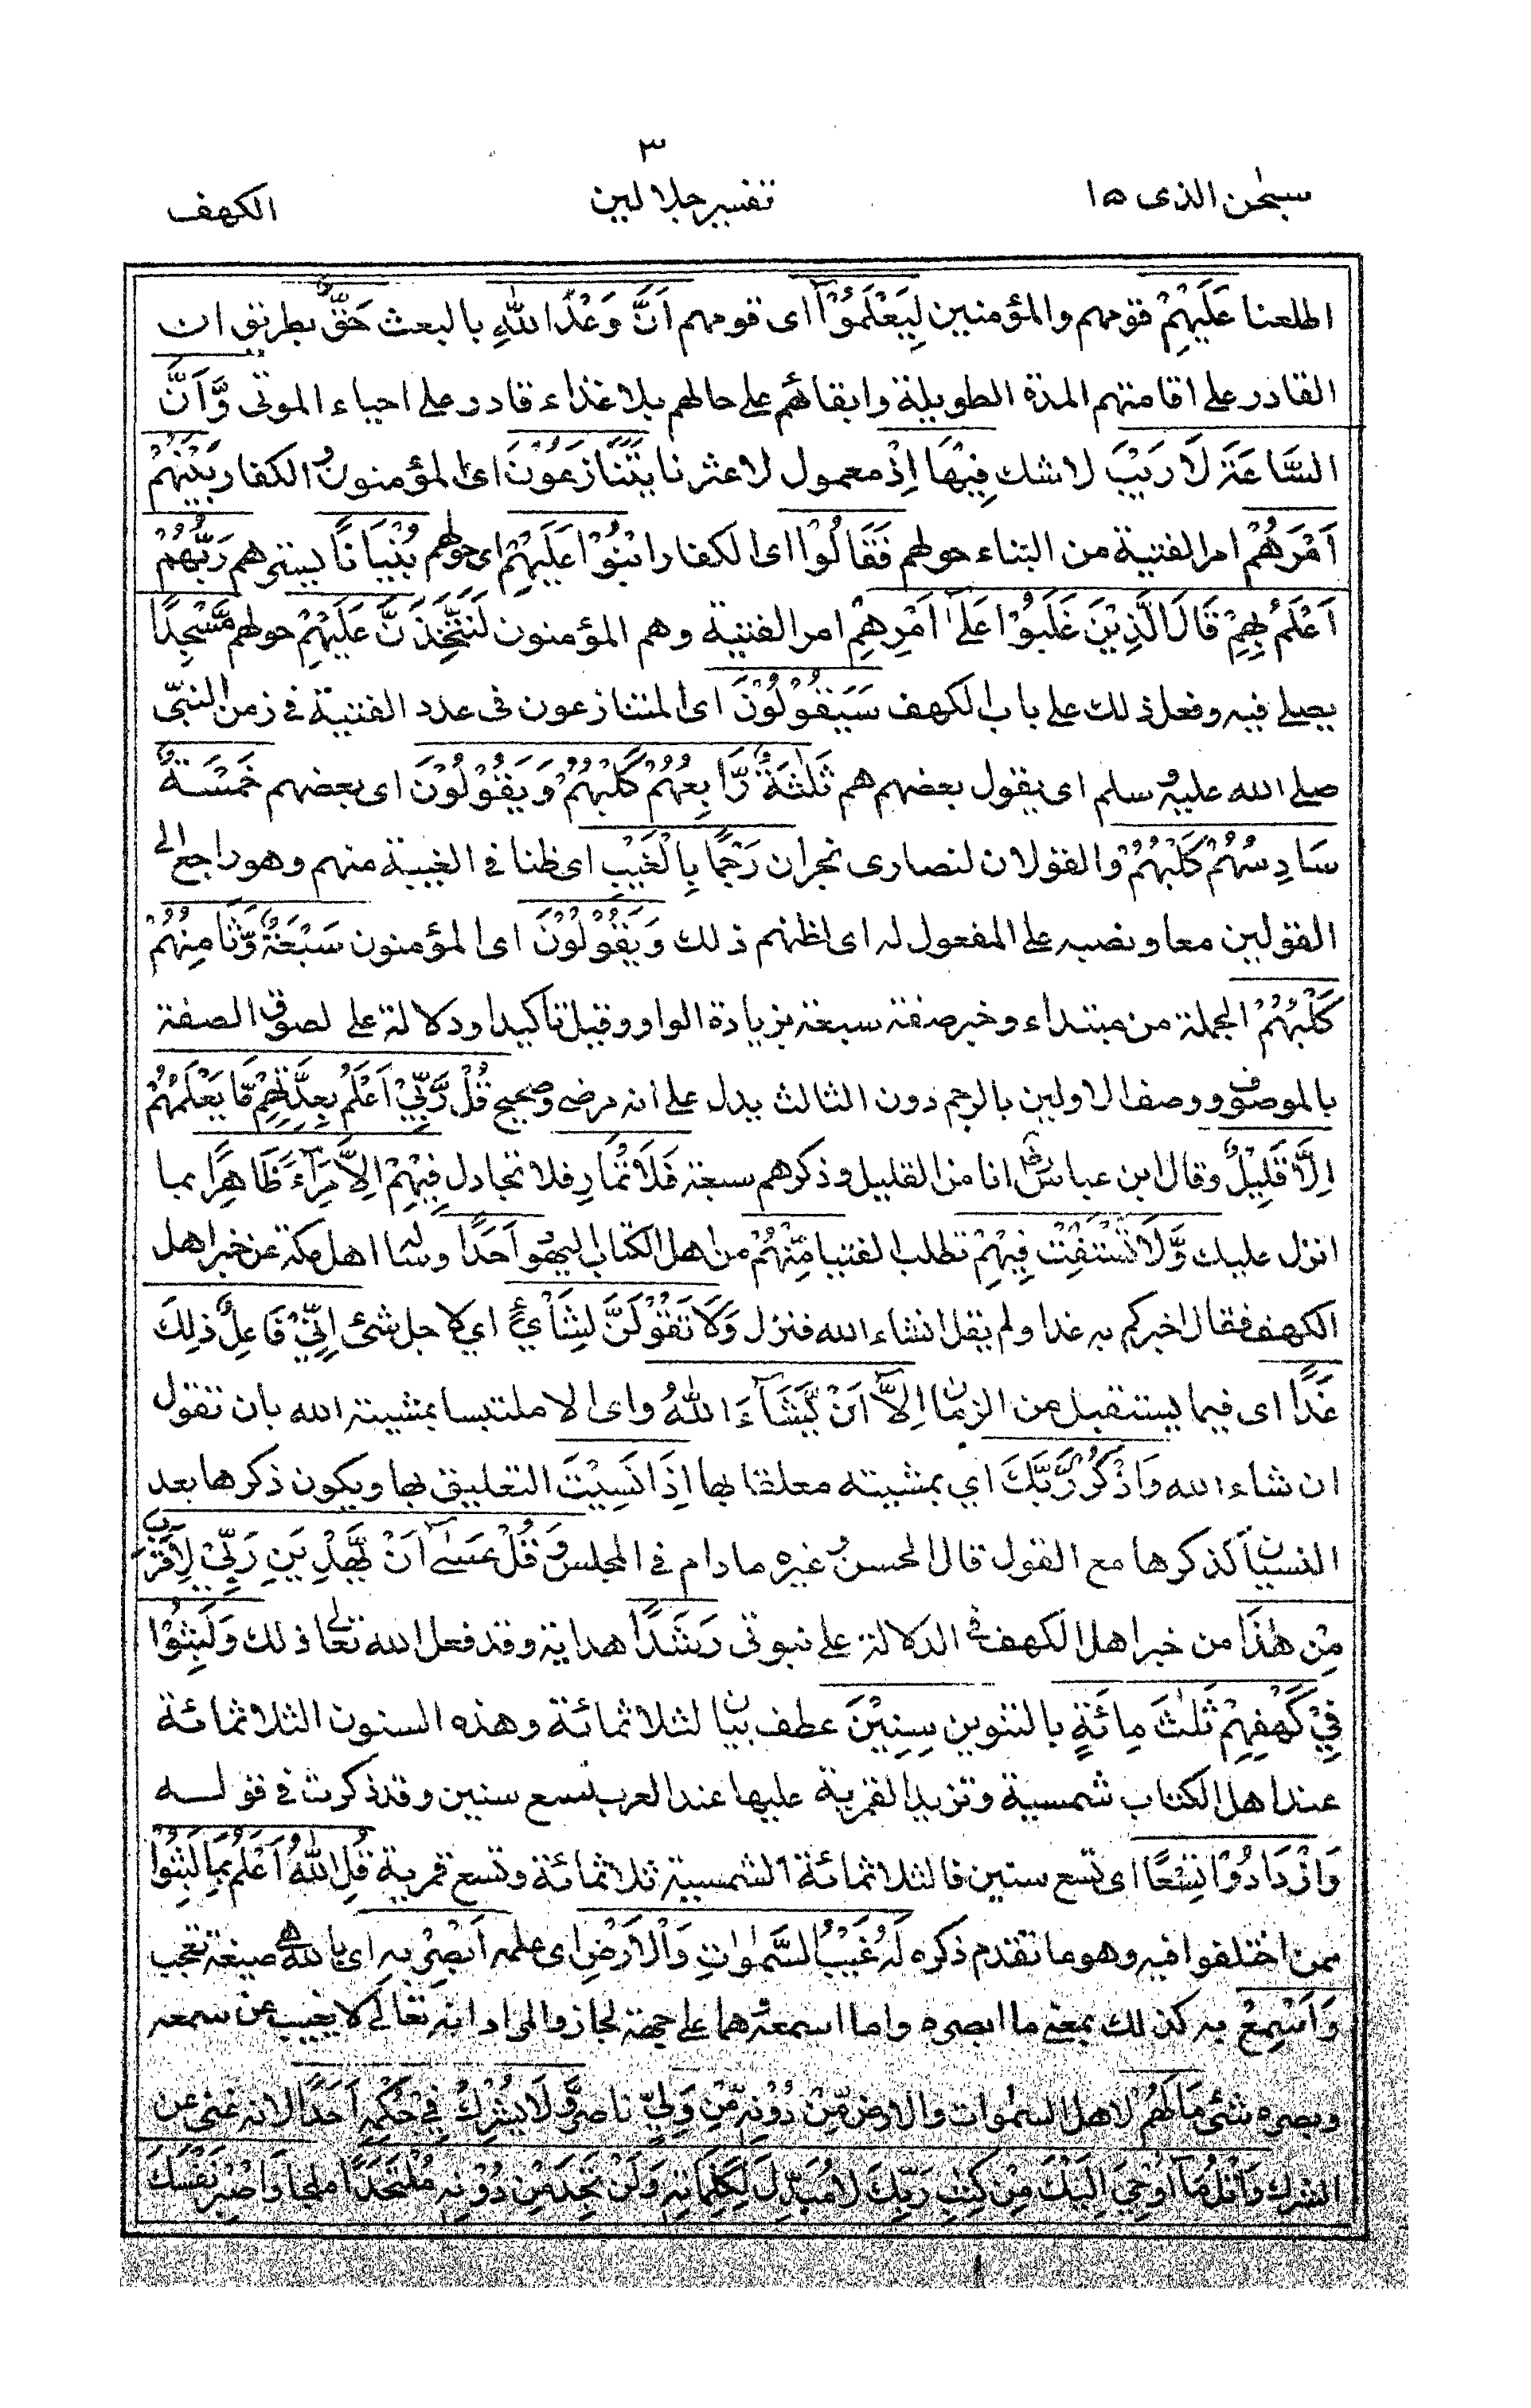 ٣
سبحٰن الذی ١٥
تفسیر جلالین
الکهف
اطلعنا عَلَيْهِمْ قومهم والمؤمنین لِيَعْلَمُوْٓا ای قومهم اَنَّ وَعْدَ اللّٰهِ بالبعث حَقٌّ بطریق ان
القادر علی اقامتهم المدة الطویلة وابقائهم علی حالهم بلا غذاء قادر علی احیاء الموتی وَّاَنَّ
السَّاعَةَ لَا رَيْبَ لا شك فِيْهَا اِذْ معمول لاعثرنا يَتَنَازَعُوْنَ ای المؤمنون و الکفار بَيْنَهُمْ
اَمْرَهُمْ امر الفتیة من البناء حولهم فَقَالُوْا ای الکفار ابْنُوْا عَلَيْهِمْ ای حولهم بُنْيَانًا یسترهم رَبُّهُمْ
اَعْلَمُ بِهِمْ قَالَ الَّذِيْنَ غَلَبُوْا عَلٰٓى اَمْرِهِمْ امر الفتیة وهم المؤمنون لَنَتَّخِذَنَّ عَلَيْهِمْ حولهم مَّسْجِدًا
یصلی فیه وفعل ذلك علی باب الکهف سَيَقُوْلُوْنَ ای المتنازعون فی عدد الفتیة فی زمن النبیّ
صلی الله علیه و سلم ای یقول بعضهم هم ثَلٰثَةٌ رَّابِعُهُمْ كَلْبُهُمْ وَيَقُوْلُوْنَ ای بعضهم خَمْسَةٌ
سَادِسُهُمْ كَلْبُهُمْ والقولان لنصاری نجران رَجْمًا بِالْغَيْبِ ای ظنا فی الغیبة منهم وهو راجع الی
القولین معا ونصبه علی المفعول له ای لظنهم ذلك وَيَقُوْلُوْنَ ای المؤمنون سَبْعَةٌ وَّثَامِنُهُمْ
كَلْبُهُمْ الجملة من مبتداء وخبر صفة سبعة بزیادة الواو وقیل تاکیدا ودلالة علی لصوق الصفة
بالموصوف ووصف الاولین بالرجم دون الثالث یدل علی انه مرضی وصحیح قُلْ رَّبِّيْٓ اَعْلَمُ بِعِدَّتِهِمْ مَّا يَعْلَمُهُمْ
اِلَّا قَلِيْلٌ وقال ابن عباس رض انا من القلیل وذکرهم سبعة فَلَا تُمَارِ فلا تجادل فِيْهِمْ اِلَّا مِرَآءً ظَاهِرًا بما
انزل علیك وَّلَا تَسْتَفْتِ فِيْهِمْ تطلب الفتیا مِّنْهُمْ من اهل الکتاب الیهود اَحَدًا وساله اهل مکة عن خبر اهل
الکهف فقال اخبرکم به غدا ولم یقل انشاء الله فنزل وَلَا تَقُوْلَنَّ لِشَايْءٍ ای لاجل شئ اِنِّيْ فَاعِلٌ ذٰلِكَ
غَدًا ای فیما یستقبل من الزمان اِلَّآ اَنْ يَّشَآءَ اللّٰهُ وای الا ملتبسا بمشیته الله بان تقول
ان شاء الله وَاذْكُرْ رَّبَّكَ ای بمشیته معلقا بها اِذَا نَسِيْتَ التعلیق بها ویکون ذکرها بعد
النسیان کذکرها مع القول قال الحسن و غیره ما دام فی المجلس وَقُلْ عَسٰٓى اَنْ يَّهْدِيَنِ رَبِّيْ لِاَقْرَبَ
مِنْ هٰذَا من خبر اهل الکهف فی الدلالة علی نبوتی رَشَدًا هدایة وقد فعل الله تعالی ذلك وَلَبِثُوْا
فِيْ كَهْفِهِمْ ثَلٰثَ مِائَةٍ بالتنوین سِنِيْنَ عطف بیان لثلاثمائة وهذه السنون الثلاثمائة
عند اهل الکتاب شمسیة وتزید القمریة علیها عند العرب تسع سنین وقد ذکرت فی قوله
وَازْدَادُوْا تِسْعًا ای تسع سنین فالثلاثمائة الشمسیة ثلاثمائة وتسع قمریة قُلِ اللّٰهُ اَعْلَمُ بِمَا لَبِثُوْا
ممن اختلفوا فیه وهو ما تقدم ذکره لَهٗ غَيْبُ السَّمٰوٰتِ وَالْاَرْضِ ای علمه اَبْصِرْ بِهٖ ای بالله هی صیغة تعجب
وَاَسْمِعْ به کذلك بمعنی ما ابصره وما اسمعه و هما علی جهة المجاز والمراد انه تعالی لا یغیب عن سمعه
وبصره شئ مَا لَهُمْ لاهل السموات والارض مِّنْ دُوْنِهٖ مِنْ وَّلِيٍّ ناصر وَّلَا يُشْرِكُ فِيْ حُكْمِهٖٓ اَحَدًا لانه غنی عن
الشرك وَاتْلُ مَآ اُوْحِيَ اِلَيْكَ مِنْ كِتٰبِ رَبِّكَ لَا مُبَدِّلَ لِكَلِمَاتِهٖ وَلَنْ تَجِدَ مِنْ دُوْنِهٖ مُلْتَحَدًا ملجا وَاصْبِرْ نَفْسَكَ